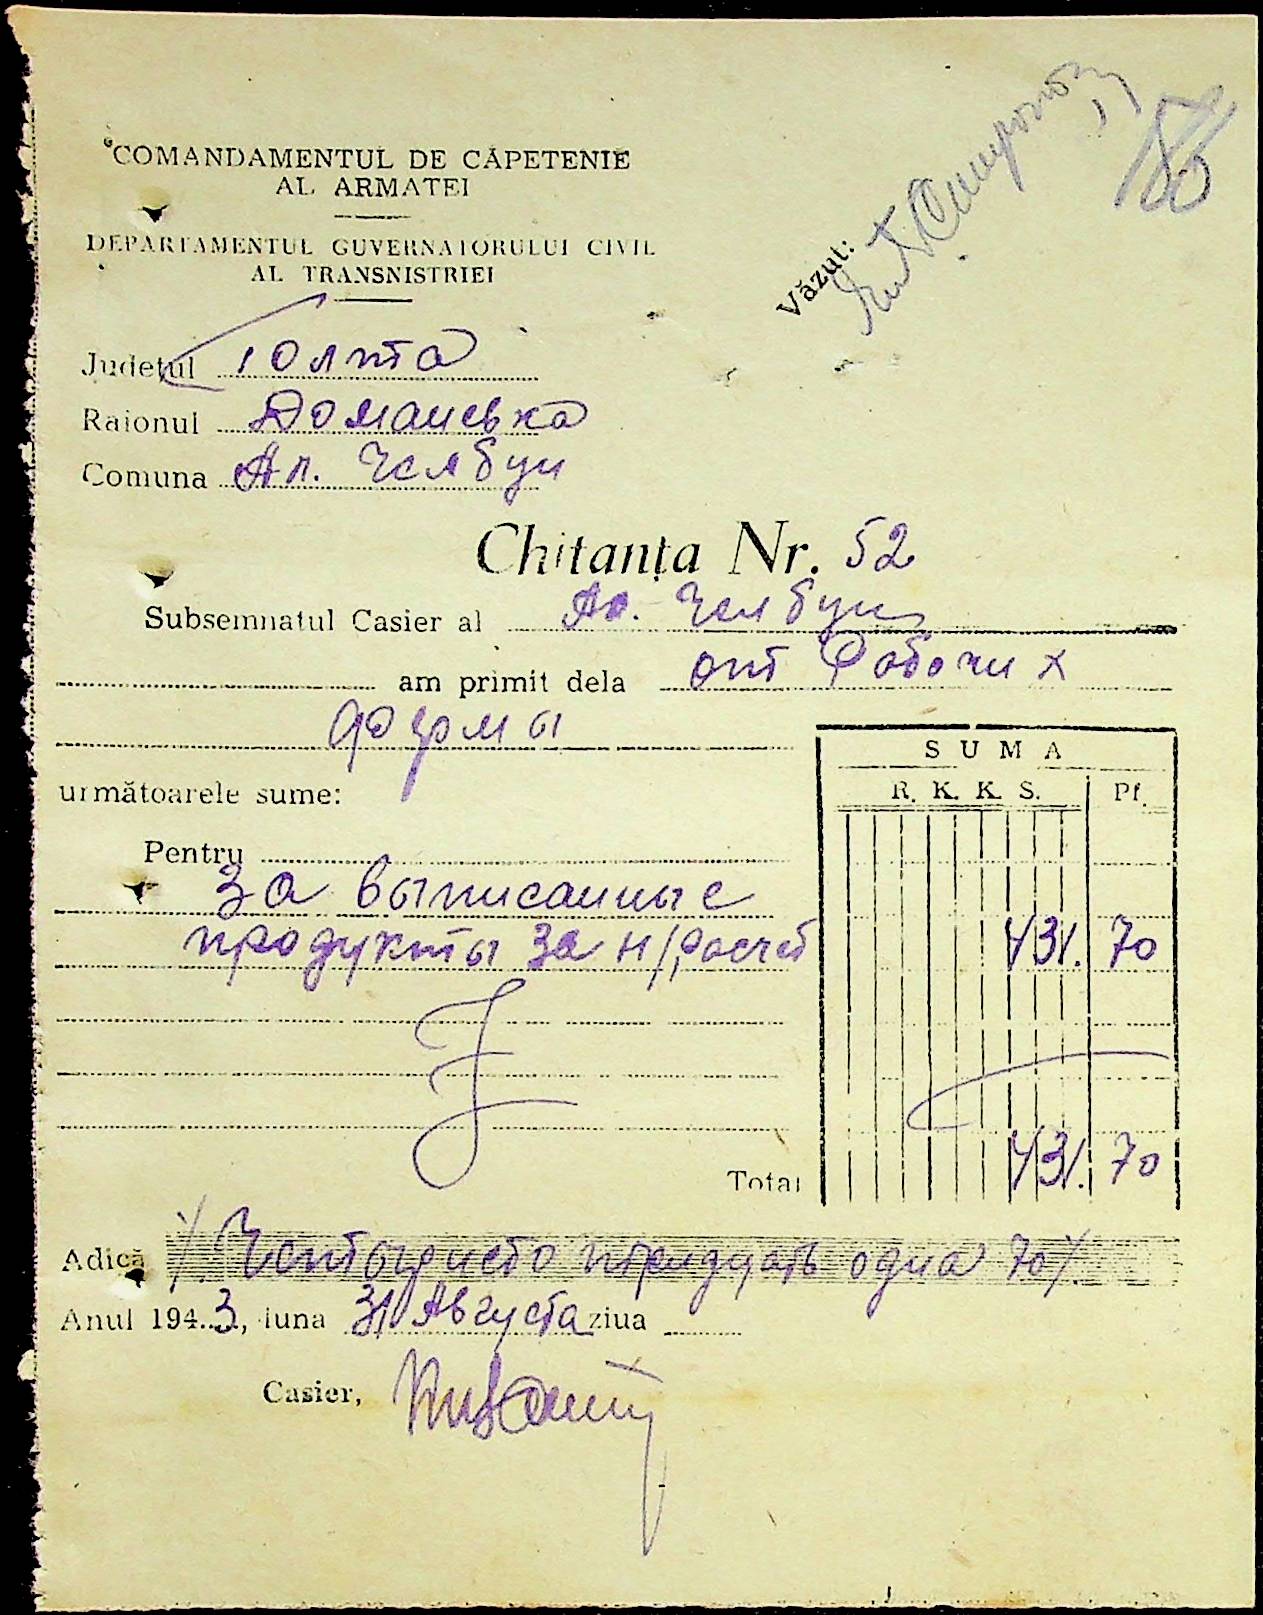 COMANDAMENTUL DE CĂPETENIE
AL ARMATEI
DEPARTAMENTUL GUVERNATORULUI CIVIL
AL TRANSNISTRIEI
Văzut:
186
Județul Голта
Raionul Доманевка
Comuna Ал. Челбун
Chitanța Nr. 52
Subsemnatul Casier al Ал. Челбун
am primit dela от Рабочих
фермы
următoarele sume:
SUMA
R. K. K. S. Pf.
Pentru
За выписанные
продукты за н/расчет 431. 70
Total 431. 70
Adică /. Четыристо тридцать одна 70/
Anul 1943, luna 31 Августа ziua
Casier,